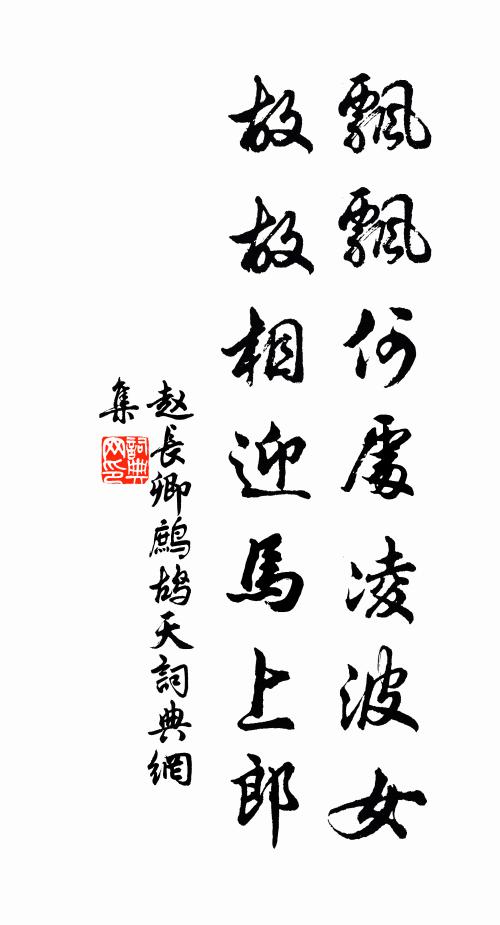 飄飄何處凌波女
故故相迎馬上郎
赵長卿鷓鴣天詞典網
集
詞典网印